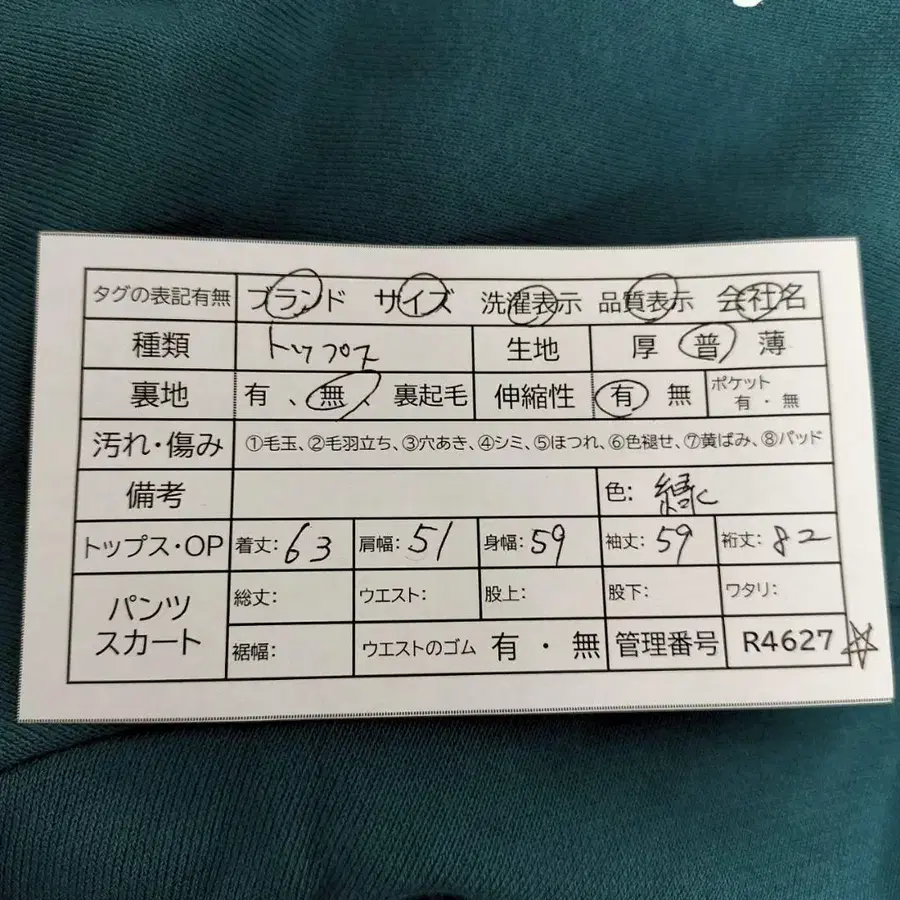 タグの表記有無 ブランド サイズ 洗濯表示 品質表示 会社名
種類 トップス 生地 厚 普 薄
裏地 有 、無、 裏起毛 伸縮性 有 無 ポケット 有・無
汚れ・傷み ①毛玉、②毛羽立ち、③穴あき、④シミ、⑤ほつれ、⑥色褪せ、⑦黄ばみ、⑧パッド
備考 色: 緑
トップス・OP 着丈:63 肩幅:51 身幅:59 袖丈:59 裄丈:82
パンツ スカート 総丈: ウエスト: 股上: 股下: ワタリ:
裾幅: ウエストのゴム 有・無 管理番号 R4627